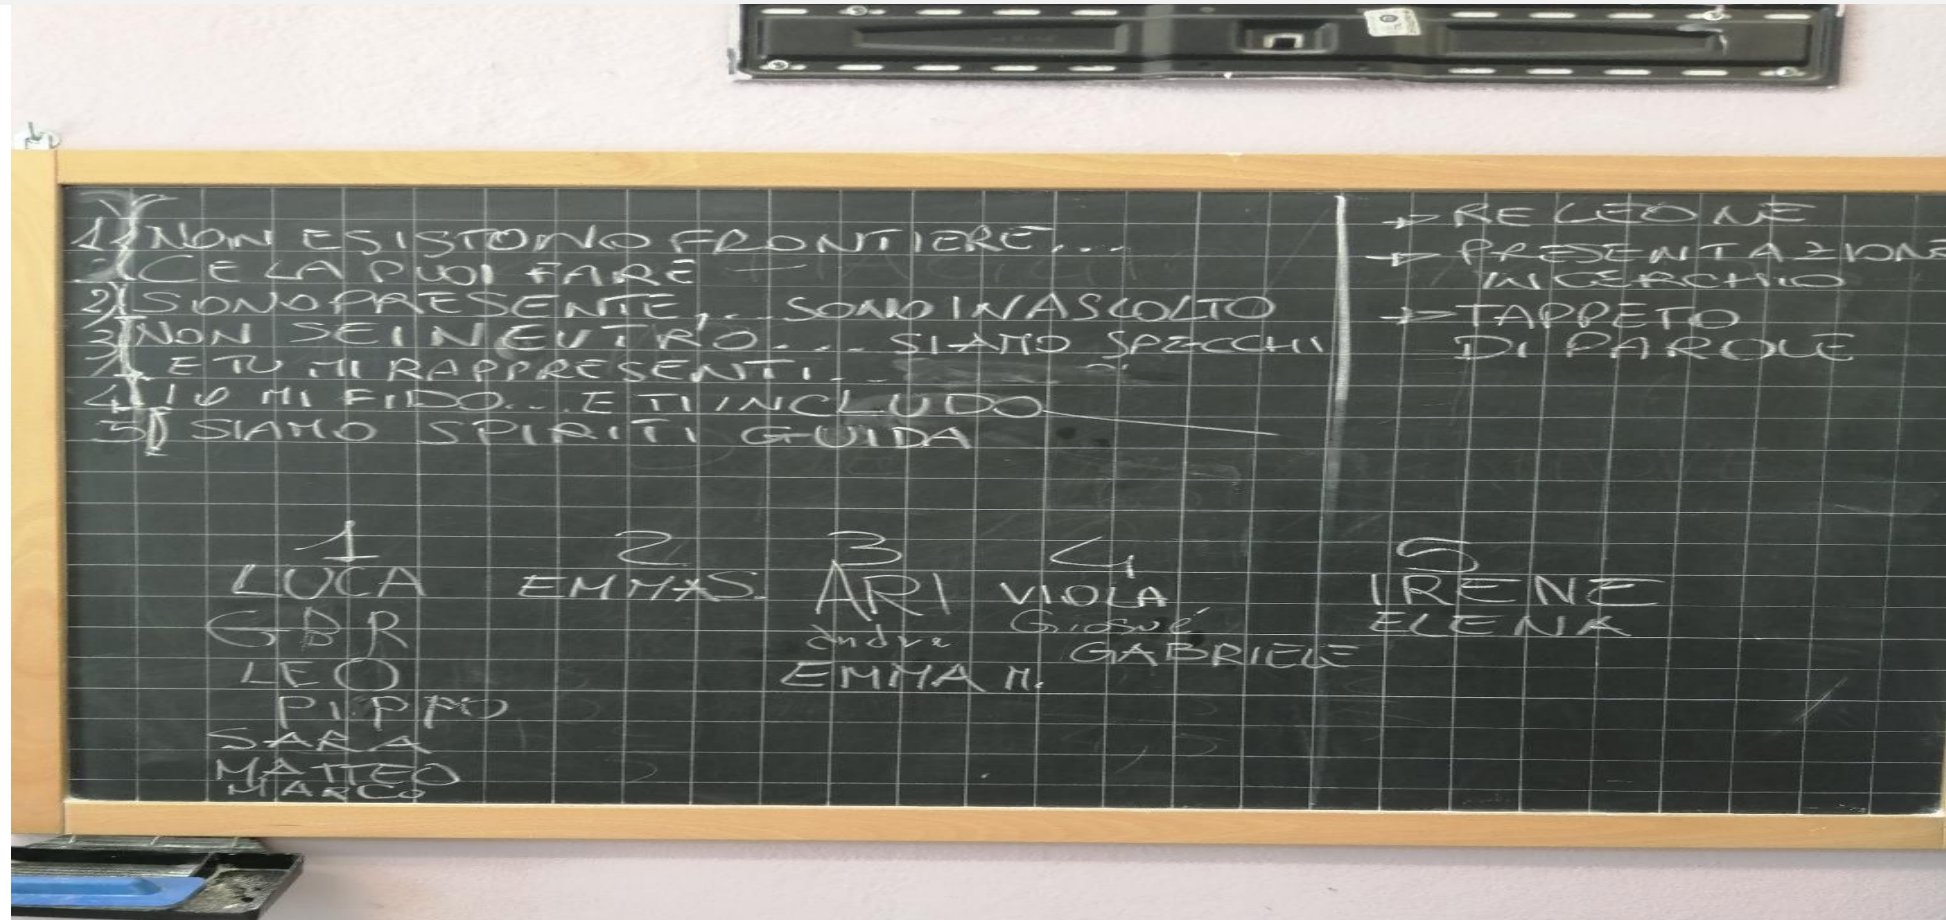 1) NON ESISTONO FRONTIERE...
CE LA PUOI FARE
2) SONO PRESENTE,... SONO IN ASCOLTO
3) NON SEI NEUTRO... SIAMO SPECCHI
E TU MI RAPPRESENTI...
4) IO MI FIDO... E TI INCLUDO
5) SIAMO SPIRITI GUIDA
→ RE LEONE
→ PRESENTAZIONE
IN CERCHIO
→ TAPPETO
DI PAROLE
1
LUCA
GBR
LEO
PIPPO
SARA
MATTEO
MARCO
2
EMMA S.
3
ARI
Andre
EMMA M.
4
VIOLA
Giosué
GABRIELE
5
IRENE
ELENA